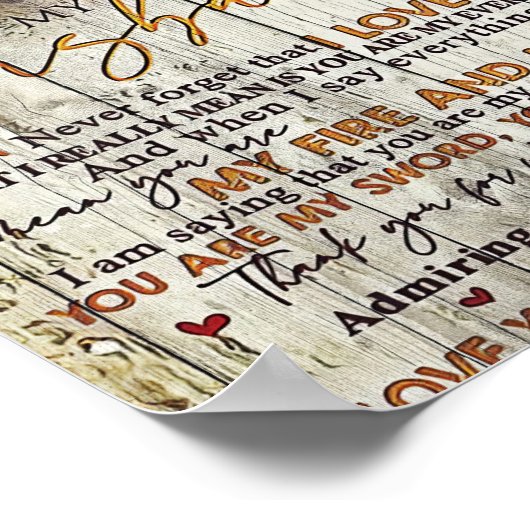 MY
Never forget that I LOVE
I REALLY MEAN IS YOU ARE MY EVER
And when I say everythin
mean you are
MY FIRE AND
I am saying that you are my
YOU ARE MY SWORD, Y
Thank you for
Admiring
LOVE